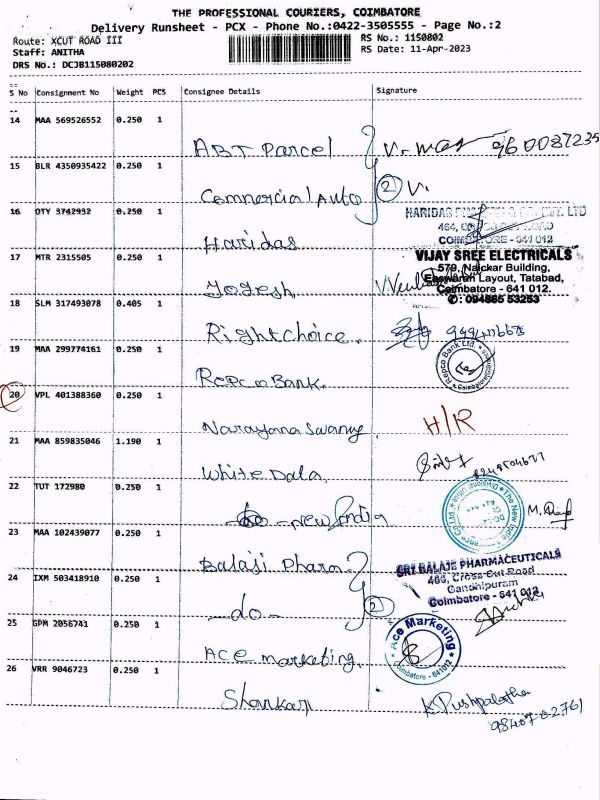 THE PROFESSIONAL COURIERS, COIMBATORE
Delivery Runsheet - PCX - Phone No.:0422-3505555 - Page No.:2
Route: XCUT ROAD III
RS No.: 1150802
Staff: ANITHA
RS Date: 11-Apr-2023
DRS No.: DCJB115080202
S No Consignment No Weight PCS Consignee Details Signature
14 MAA 569526552 0.250 1
ABT Parcel
15 BLR 4350935422 0.250 1
Commercial Auto (2) V.
16 OTY 3742932 0.250 1
Haridas
HARIDAS LTD
COIMBATORE - 641 012
17 MTR 2315505 0.250 1
Yogesh
VIJAY SREE ELECTRICALS
579, Naickar Building,
Eswaran Layout, Tatabad,
Coimbatore - 641 012.
✆: 094865 53253
18 SLM 317493078 0.405 1
Right Choice.
19 MAA 299774161 0.250 1
Repco Bank.
Repco Bank Ltd.
Coimbatore
20 VPL 401388360 0.250 1
Narayana Swamy H/R
21 MAA 859835046 1.190 1
White Data
22 TUT 172980 0.250 1
- new India
The New India Assurance Co. Ltd.
23 MAA 102439077 0.250 1
Balaji Pharm
SRI BALAJE PHARMACEUTICALS
466, Cross Cut Road
Gandhipuram
Coimbatore - 641 012
24 IXM 503418910 0.250 1
- do - (2)
25 GPM 2056741 0.250 1
Ace marketing.
Ace Marketing
Coimbatore - 641012
26 VRR 9046723 0.250 1
Shankar
K. Pushpalatha
98407-02761